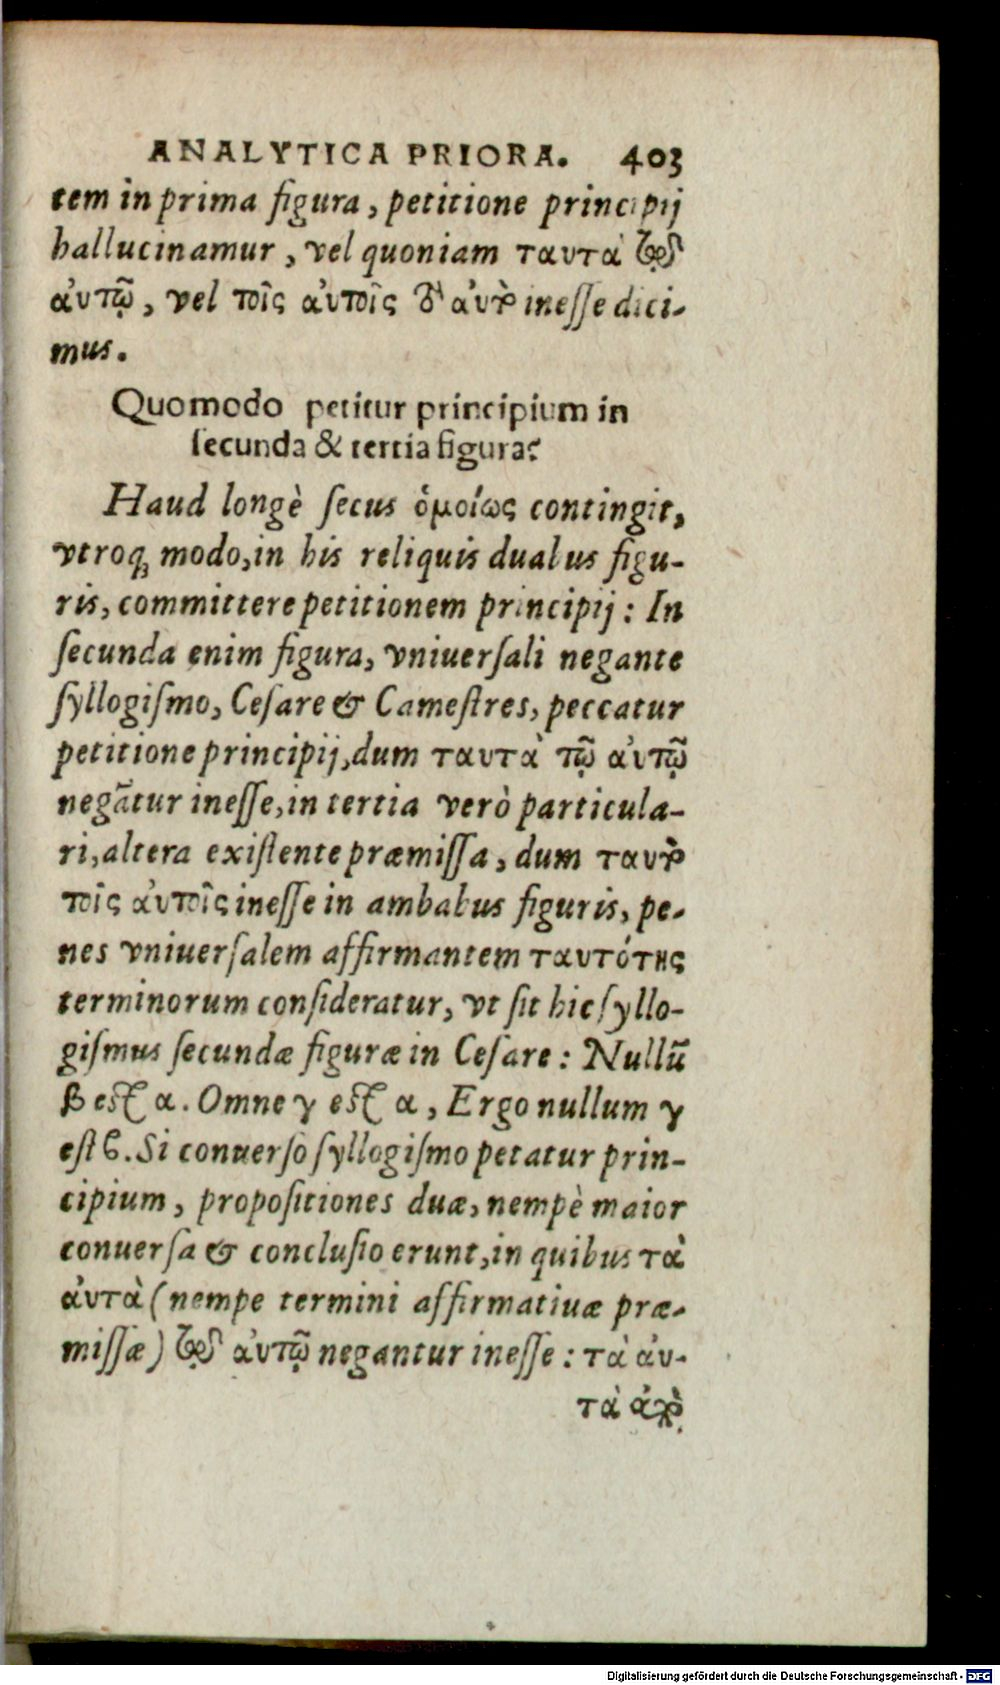 ANALYTICA PRIORA. 403
tem in prima figura, petitione principij
hallucinamur, vel quoniam ταυτὰ
ἀυτῷ, vel τοῖς ἀυτοῖς inesse dici-
mus.
Quomodo petitur principium in
secunda & tertia figura?
Haud longè secus ὁμοίως contingit,
vtroq; modo, in his reliquis duabus figu-
ris, committere petitionem principij: In
secunda enim figura, vniuersali negante
syllogismo, Cesare & Camestres, peccatur
petitione principij, dum ταυτὰ τῷ ἀυτῷ
negãtur inesse, in tertia verò particula-
ri, altera existente præmissa, dum ταυτὰ
τοῖς ἀυτοῖς inesse in ambabus figuris, pe-
nes vniuersalem affirmantem ταυτότης
terminorum consideratur, vt sit hic syllo-
gismus secundæ figuræ in Cesare: Nullũ
β est α. Omne γ est α, Ergo nullum γ
est ϐ. Si conuerso syllogismo petatur prin-
cipium, propositiones duæ, nempè maior
conuersa & conclusio erunt, in quibus τὰ
ἀυτὰ (nempe termini affirmatiuæ præ-
missæ) ἀυτῷ negantur inesse: τὰ ἀυ-
τὰ
Digitalisierung gefördert durch die Deutsche Forschungsgemeinschaft - DFG